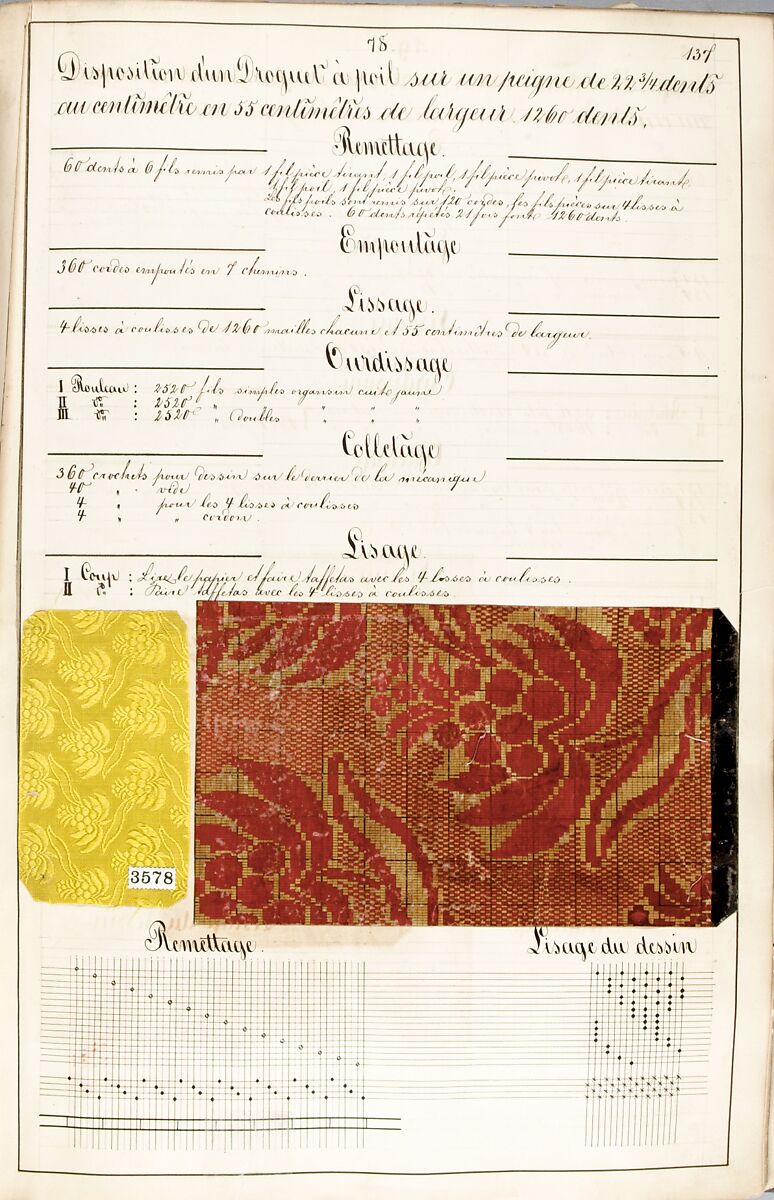 78
137
Disposition d'un Droguet à poil sur un peigne de 22 3/4 dents
au centimètre en 55 centimètres de largeur. 1260 dents.
Remettage.
60 dents à 6 fils remis par 1 fil pièce tirant, 1 fil poil, 1 fil pièce pivot, 1 fil pièce tirant,
1 fil poil, 1 fil pièce pivot.
Les fils poils sont remis sur 120 cordes, les fils pièces sur 4 lisses à
coulisses. 60 dents répétés 21 fois font 1260 dents.
Empoutage
360 cordes empoutés en 7 chemins.
Lissage.
4 lisses à coulisses de 1260 mailles chacune et 55 centimètres de largeur.
Ourdissage
I Rouleau : 2520 fils simples organsin cuit jaune
II d° : 2520 " " " "
III d° : 2520 " doubles " " "
Colletage
360 crochets pour dessin sur le derrier de la mécanique
40 " vide
4 " pour les 4 lisses à coulisses
4 " " cordon.
Lisage.
I Coup : Lire le papier et faire taffetas avec les 4 lisses à coulisses.
II d° : Faire taffetas avec les 4 lisses à coulisses.
3578
Remettage.
Lisage du dessin